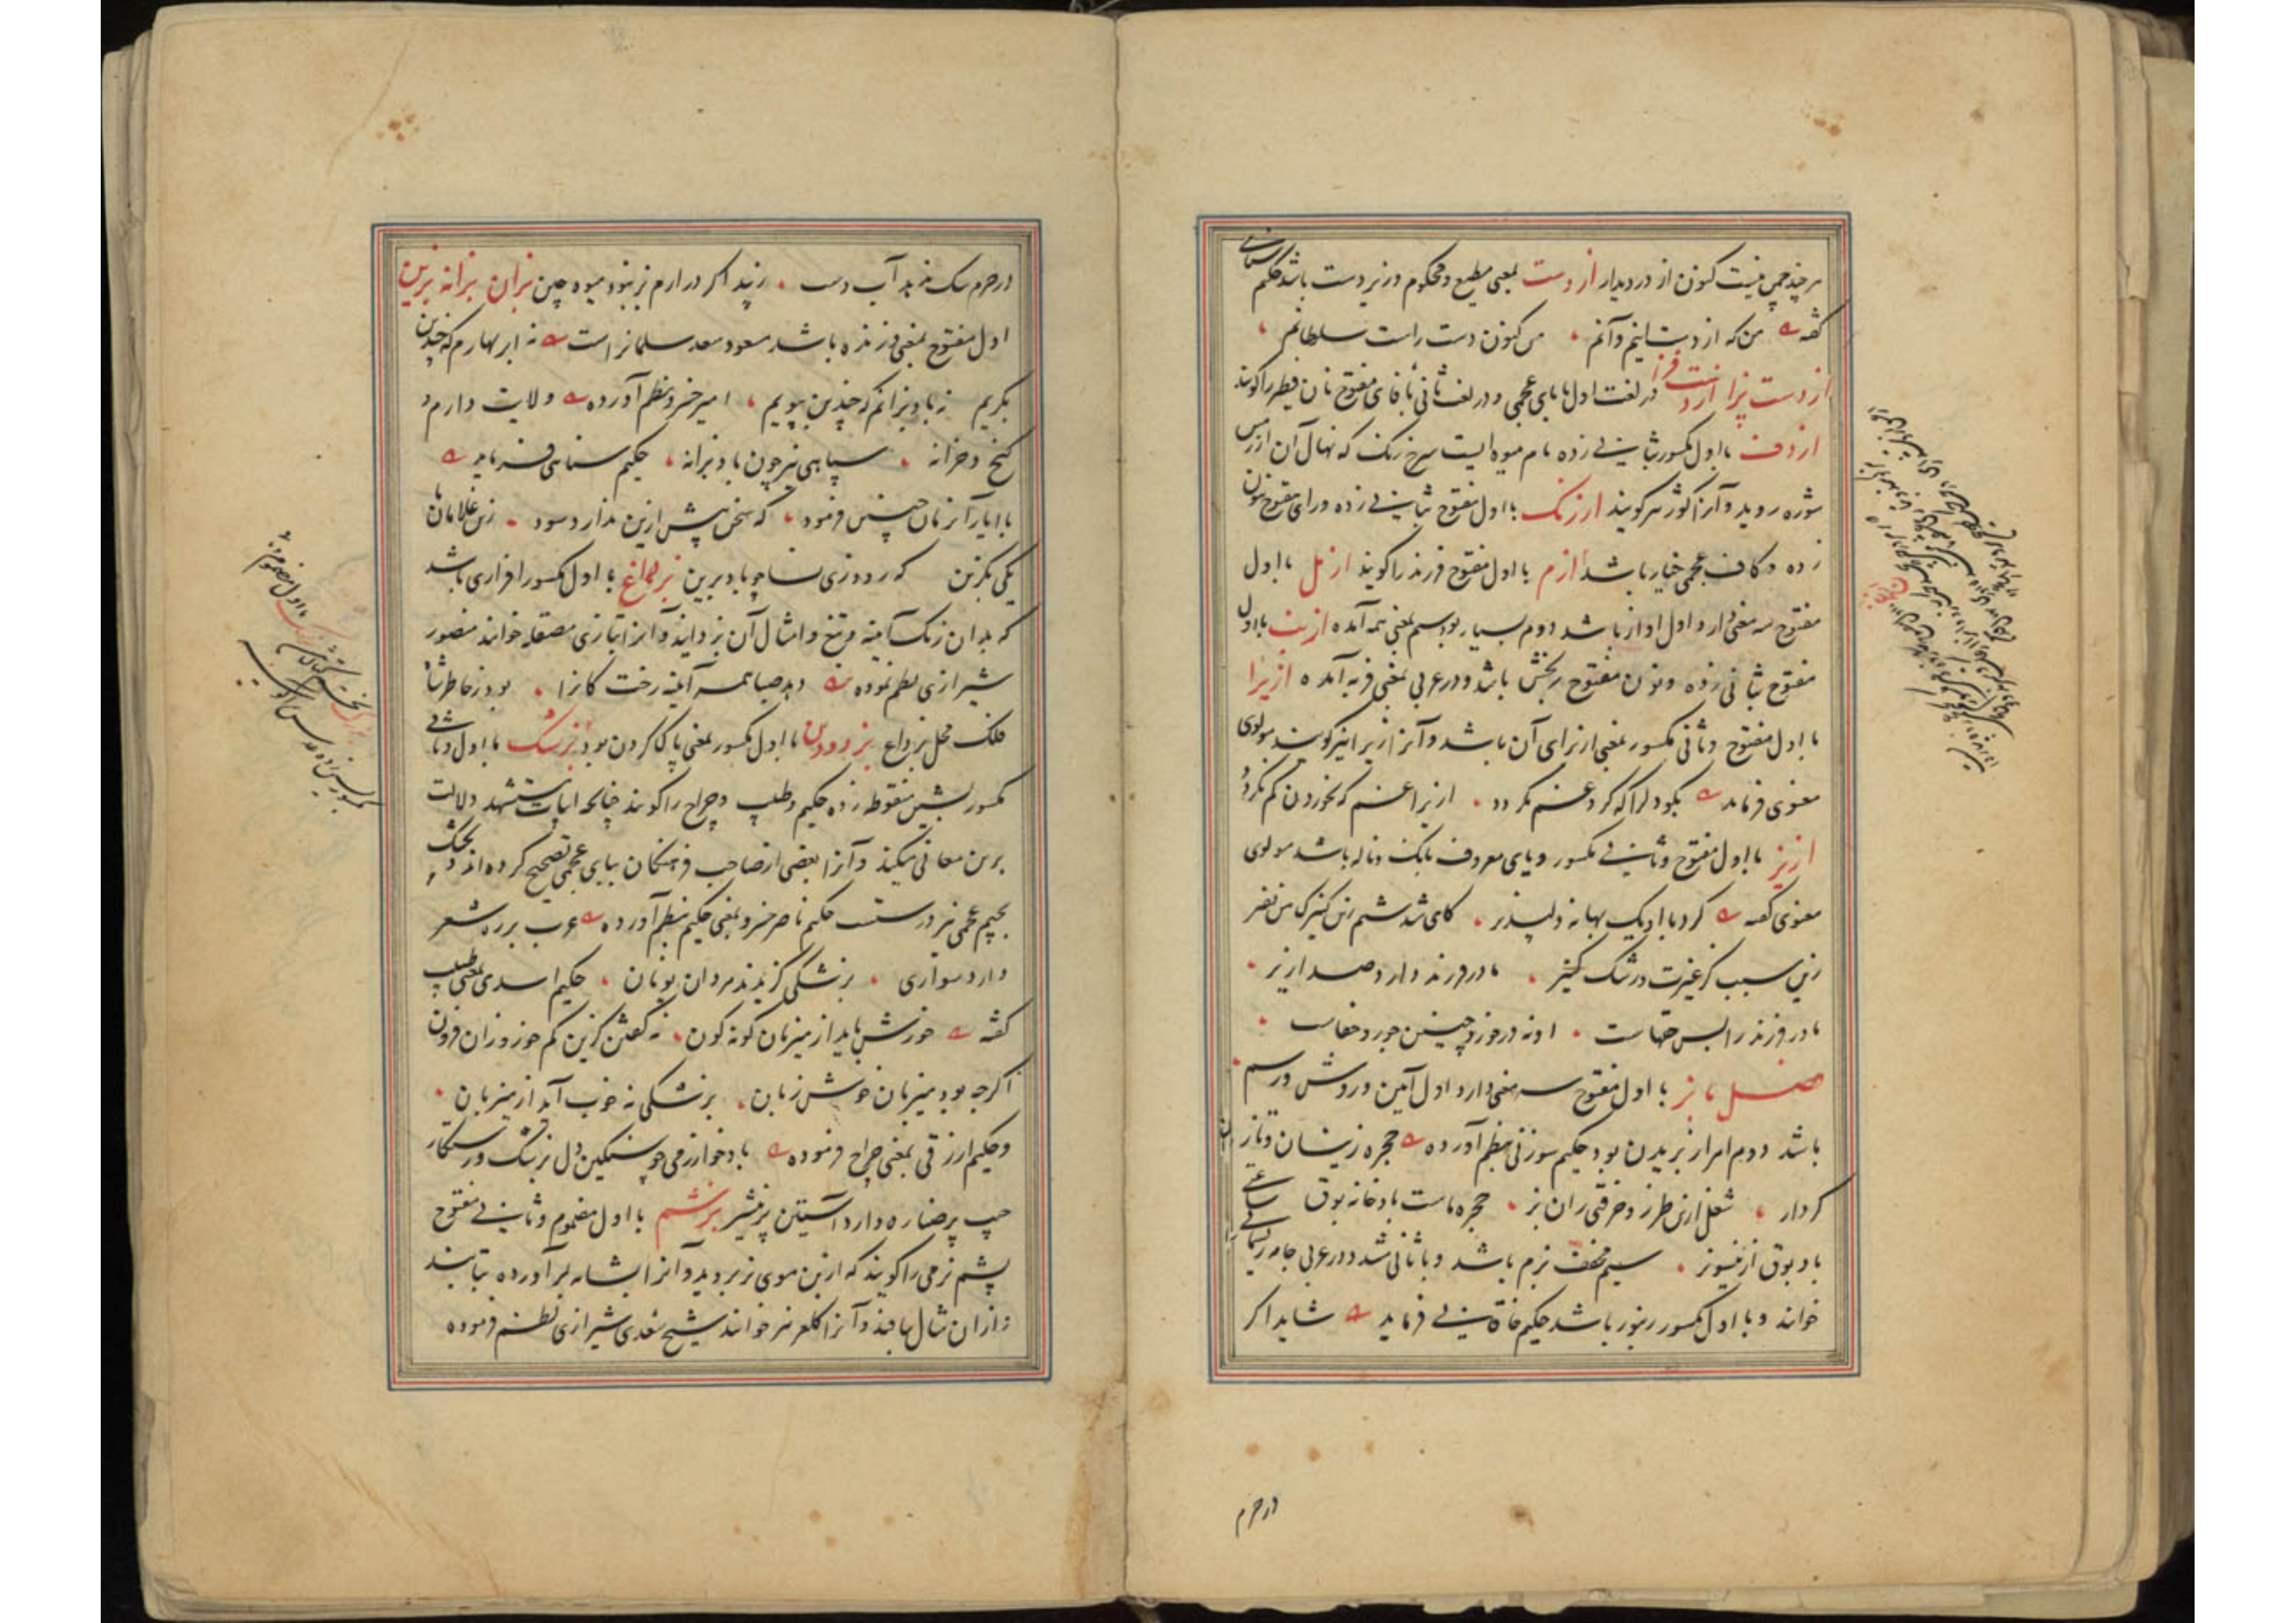 هر چند چمن نیست کنون از در دیدار از دست بمعنی مطیع و محکوم و زیردست باشد حکیم سنائی
گفته من که از دست اینم و آنم من کنون دست راست سلطانم
از دست پزا از دست فزا در لغت اول با بای عجمی و در لغت ثانی با فای مفتوح نان فطیر را گویند
ازدف با اول مکسور بثانی زده نام میوه ایست سرخ رنگ که نهال آن از زمین
شوره روید و آنرا کوژ نیز گویند ازرنگ با اول مفتوح بثانی زده و رای مفتوح بنون
زده و کاف عجمی خیار باشد ازم با اول مفتوح فرزند را گویند ازمل با اول
مفتوح سه معنی دارد اول آواز باشد دوم بسیار بود سیم بمعنی همه آمده ازنب با اول
مفتوح بثانی زده و نون مفتوح رنجش باشد و در عربی بمعنی فربه آمده ازیرا
با اول مفتوح و ثانی مکسور بمعنی از برای آن باشد و آنرا زیرا نیز گویند مولوی
معنوی فرماید بگو دلرا که گرد غم نگردد ازیرا غم که بخوردن کم نگردد
ازیز با اول مفتوح و ثانی مکسور و یای معروف بانگ و ناله باشد مولوی
معنوی گفته کرد با او یک بهانه دلپذیر کای شدستم زین کنیزک من نفیر
زین سبب کز غیرت و رشک کنیز مادر فرزند دارد صد ازیز
مادر فرزند را بس حقهاست او نه در خورد چنین جور و جفاست
فصل با بز با اول مفتوح سه معنی دارد اول آیین و روش و رسم
باشد دوم امر از بزیدن بود حکیم سوزنی بنظم آورده حجره زینسان و تاز
کردار شغل ازین طرز و حرفتی ران بز حجره ماست بادخانه بوق ساعتی
باد بوق از بز سیم مخفف بزم باشد و با ثانی مشدد در عربی جامه ریسمانی
خوانند و با اول مکسور زنبور باشد حکیم خاقانی فرماید شاید اگر
در حرم
در حرم سگ نزید آب دست زیبد اگر در ارم بز نبود میوه چین بزان بزانه بزین
اول مفتوح بمعنی وزنده باشد مسعود سعد سلمانراست نه ابر بهارم که چندین
بگریم نه باد بزانم که چندین بپویم امیرخسرو بنظم آورده ولایت دارم و
گنج و خزانه سپاهی نیز چون باد بزانه حکیم سنائی فرماید
با ایاز آنزمان چنین فرمود که سخن بیش ازین ندارد سود زین غلامان
یکی بگزین که رود زی نسا چو باد بزین بزداغ با اول مکسور افزاری باشد
که بدان زنگ آینه و تیغ و امثال آن بزدایند و آنرا بتازی مصقله خوانند منصور
شیرازی نظم نموده دهد صبا همه آینه رخت کانرا بود ز خاطر شاه
فلک محل بزداغ بزدودن با اول مکسور بمعنی پاک کردن بود بزشک با اول و ثانی
مکسور بشین منقوطه زده حکیم و طبیب و جراح را گویند چنانچه ابیات مستشهد دلالت
برین معانی میکند و آنرا بعضی از صاحب فرهنگان ببای عجمی تصحیح کرده اند و بجشک
بجیم عجمی نیز درست حکیم ناصرخسرو بمعنی حکیم بنظم آورده عرب بر ره شعر
دارد سواری بزشکی گزیدند مردان یونان حکیم اسدی بمعنی طبیب
گفته خورش باید از میزبان گونه گون نه گفتن کزین کم خور و زان فزون
اگرچه بود میزبان خوش زبان بزشکی نه خوب آید از میزبان
و حکیم ازرقی بمعنی جراح فرموده باد خوارزمی چو سنگین دل بزشک و رستگار
جیب پر خنا ره دارد آستین پر نیشتر بزشم با اول مضموم و ثانی مفتوح
پشم نرمی را گویند که از بن موی بز بروید و آنرا بشانه برآورده بتابند
و از آن شال بافند و آنرا کلغر نیز خوانند شیخ سعدی شیرازی نظم فرموده